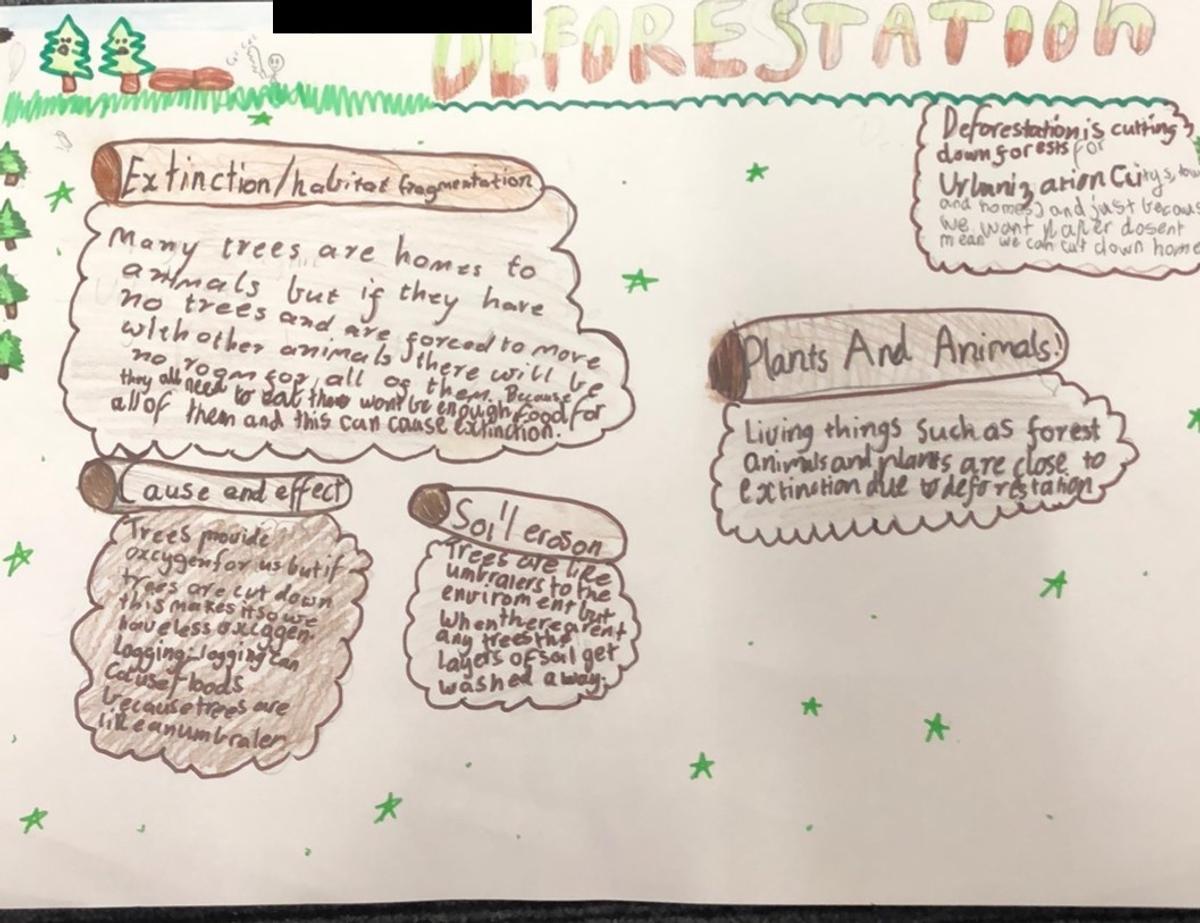 DEFORESTATION
Deforestation is cutting
down forests for
Urbanization
and homes) and just
we want paper dosent
mean we can cut down
Extinction/habitat fragmentation
Many trees are homes to
animals but if they have
no trees and are forced to move
with other animals there will be
no room for all of them. Because
they all need to eat there won't be enough food for
all of them and this can cause extinction.
Plants And Animals!
Living things such as forest
animals and plants are close to
extinction due to deforestation
Cause and effect
Trees provide
oxcygen for us but if
trees are cut down
this makes it so we
have less oxiggen.
Logging:-logging can
cause floods
because trees are
like an umbraler
Soil eroson
Trees are like
umbralers to the
enviroment but
when there arent
any trees the
layers of soil get
washed away.